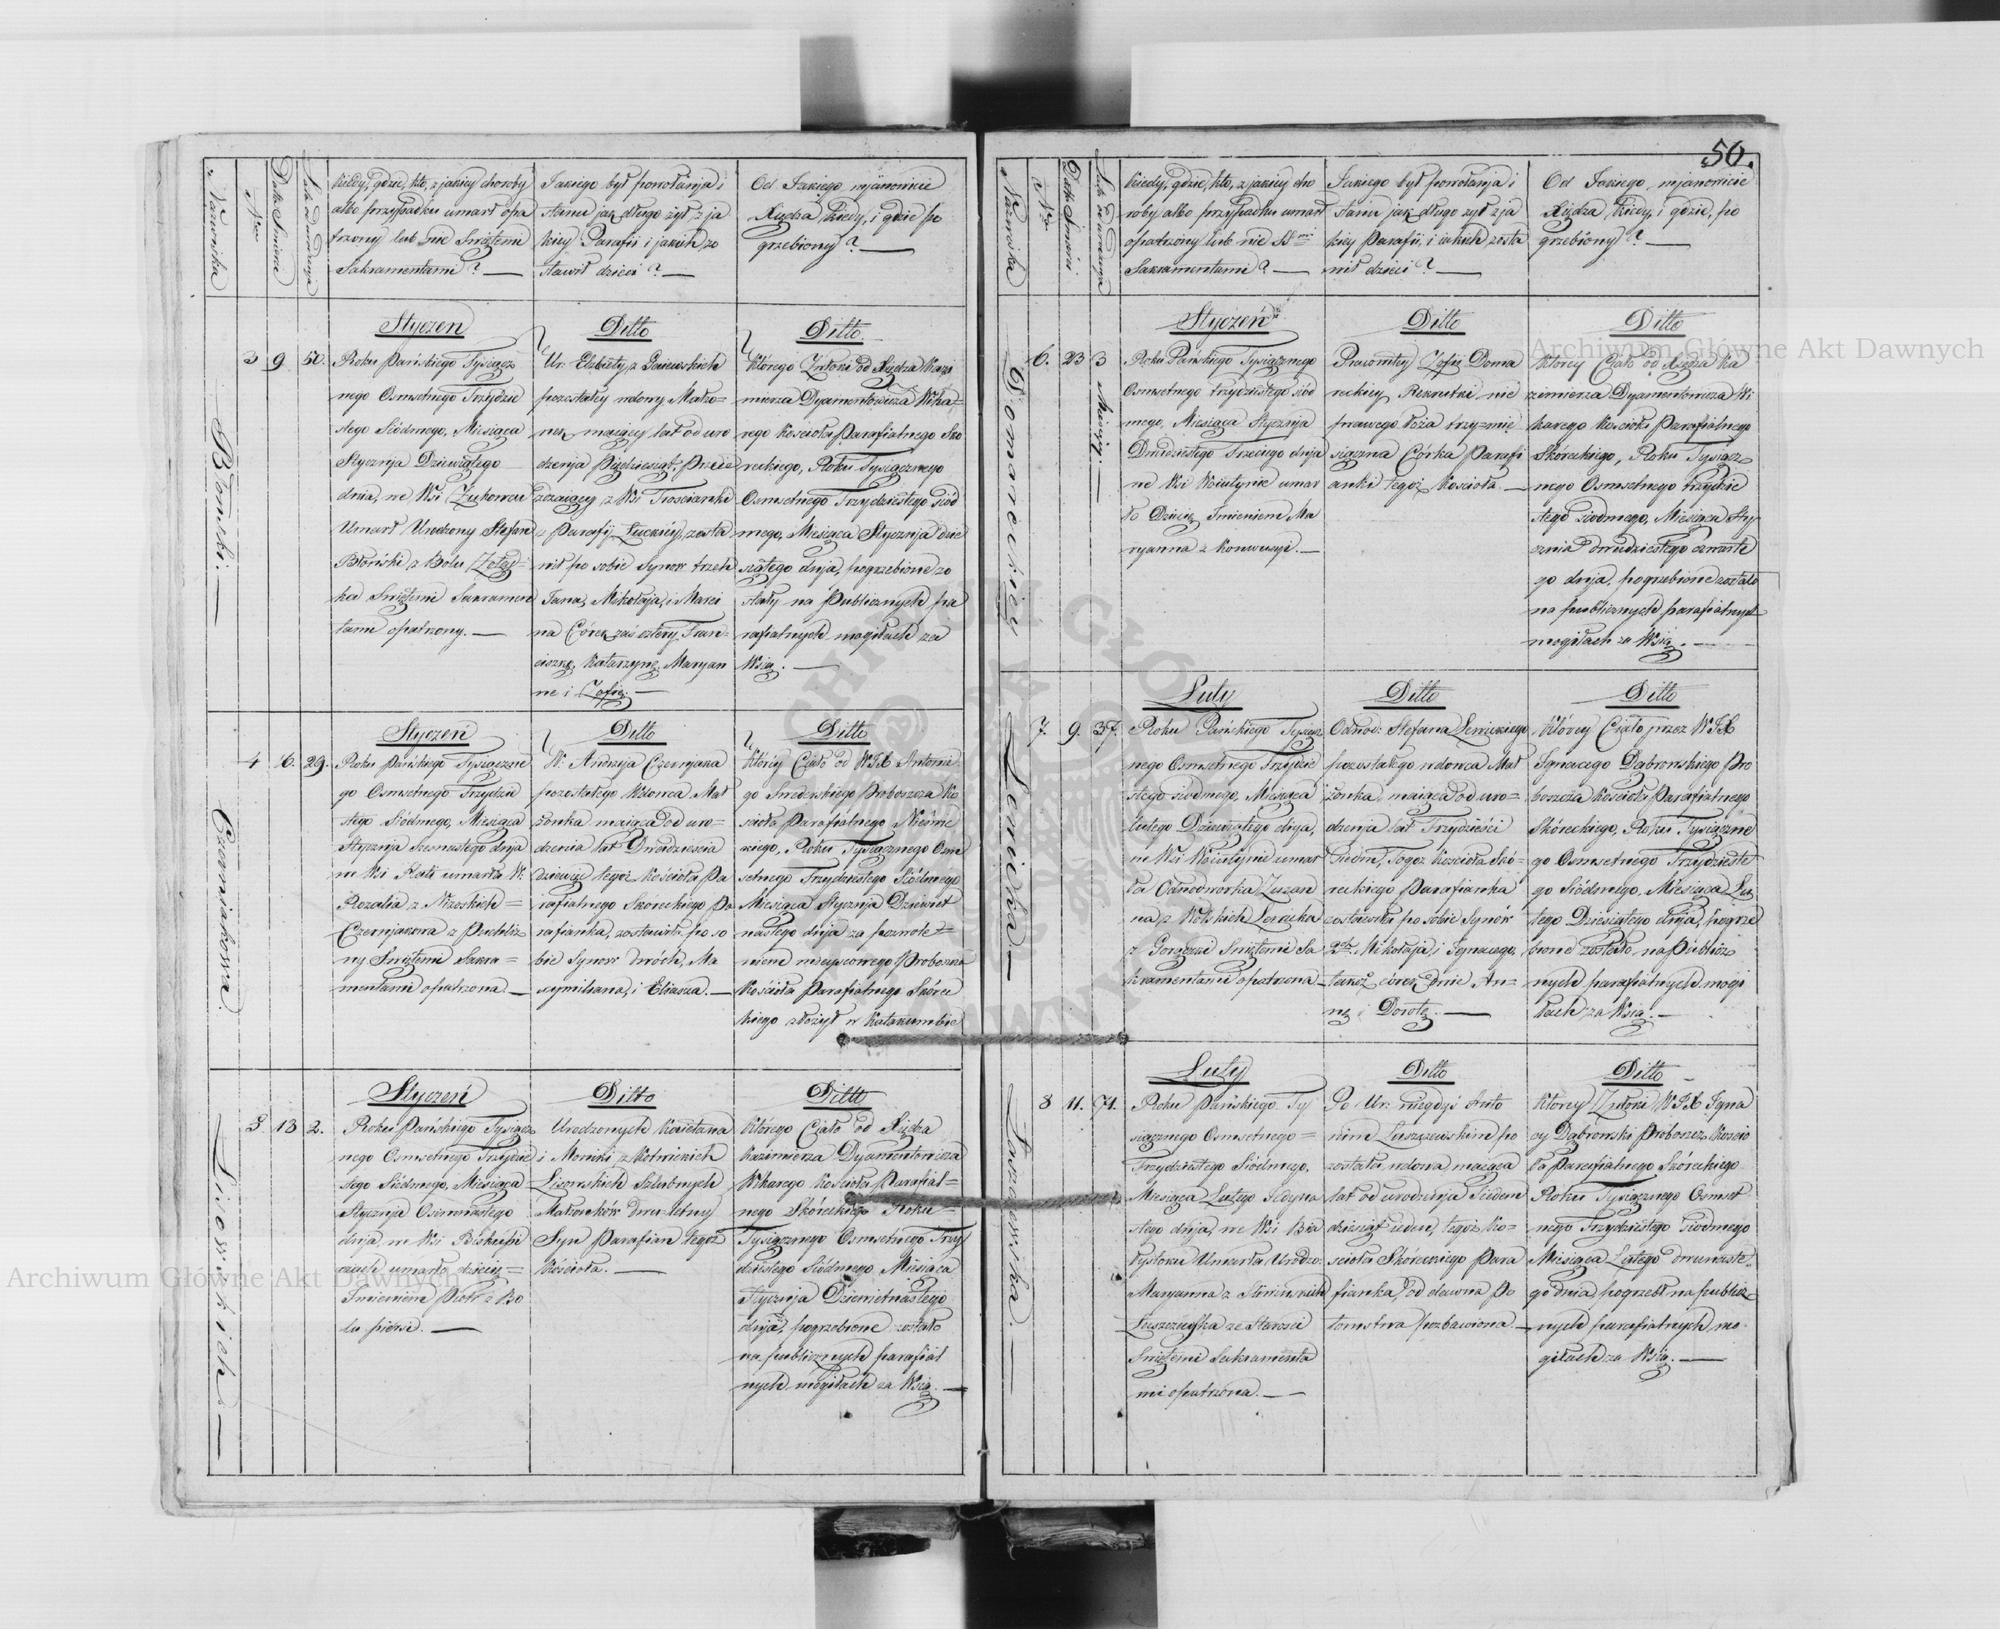 50.
Nazwiska
Nro
Data Śmierci
Lata od urodzenia
Kiedy, gdzie, kto, z jakiey choroby
albo przypadku umarł opa
trzony lub nie Swiętemi
Sakramentami? —
Jakiego był powołania i
stanu jak długo żył z ja
kiey Parafii i jakich zo
stawił dzieci? —
Od Jakiego mianowicie
Xiędza, kiedy, i gdzie po
grzebiony? —
Błoński. —
3 9 50.
Styczeń
Roku Pańskiego Tysiącz
nego Osmsetnego Trzydzie
stego Siódmego, Miesiąca
Stycznia Dziewiątego
dnia, we Wsi Żukowcu
Umarł Urodzony Stefan
Błoński z Bolu Żołąd=
ka Swiętemi Sakramen
tami opatrzony. —
Ditto
Ur: Elżbiety z
pozostałey wdowy Małżo=
nek maiący lat od uro
dzenia Pięćdziesiąt, Prze
z Wsi
z Parafij Łuckiey, zosta
wił po sobie Synow trzech
Jana, Mikołaja, i Marci
na Córek zaś cztery, Fran=
ciszkę, Katarzynę, Maryan
nę i Zofię. —
Ditto
Którego Zwłoki od Xiędza Kazi
mierza Dyamentowicza Wika=
rego Kościoła Parafialnego Skó
reckiego, Roku Tysiącznego
Osmsetnego Trzydziestego Siód
mego, Miesiąca Stycznia dzie
siątego dnia, pogrzebione zo
stały na Publicznych pa
rafialnych mogiłach za
Wsią. —
Czerniakowa.
4 16. 29.
Styczeń
Roku Pańskiego Tysiączne
go Osmsetnego Trzydzie
stego Siódmego, Miesiąca
Stycznia Szesnastego dnia
we Wsi umarła W:
Rozalia z =
Czerniakowa z
ny Swiętemi Sakra=
mentami opatrzona —
Ditto
W: Andrzeja Czerniaka
pozostałego Wdowca Mał
żonka maiąca od uro=
dzenia lat Dwadzieścia
dziewięć tegoż Kościoła Pa
rafialnego Skóreckiego Pa
rafianka, zostawiła po so
bie Synow dwóch, Ma
xymiliana, i Eliasza. —
Ditto
Którey Ciało od WJX Antonie
go Proboszcza Ko
ścioła Parafialnego
kiego, Roku Tysiącznego Osm
setnego Trzydziestego Siódmego
Miesiąca Stycznia Dziewięt
nastego dnia za pozwole=
niem mieyscowego Proboszcza
Kościoła Parafialnego Skórec
kiego złożył w Katakumbie
Lisowskich —
5 18 2.
Styczeń
Roku Pańskiego Tysiącz
nego Osmsetnego Trzydzie
stego Siódmego, Miesiąca
Stycznia Osimnastego
dnia, we Wsi
umarło dziecię=
Imieniem Piotr z Bo
lu piersi. —
Ditto
Urodzonych Kaietana
i Moniki z
Lisowskich Szlubnych
Małżonków dwu letny
Syn Parafian tegoż
Kościoła. —
Ditto
Którego Ciało od Xiędza
Kazimierza Dyamentowicza
Wikarego Kościoła Parafial=
nego Skóreckiego Roku=
Tysiącznego Osmsetnego Trzy
dziestego Siódmego Miesiąca
Stycznia Dziewietnastego
dnia, pogrzebione zostało
na publicznych parafial
nych mogiłach za Wsią. —
Nazwiska
Nro
Data Śmierci
Lata od urodzenia
Kiedy, gdzie, kto, z jakiey cho
roby albo przypadku umarł
opatrzony lub nie SSmi
Sakramentami? —
Jakiego był powołania i
stanu jak długo żył z ja
kiey Parafii, i jakich zosta
wił dzieci? —
Od Jakiego mianowicie
Xiędza, kiedy, i gdzie, po
grzebiony? —
Domareckiey
6. 23 3 Miesięcy. —
Styczeń
Roku Pańskiego Tysiącznego
Osmsetnego trzydziestego siód
mego, Miesiąca Stycznia
Dwudziestego Trzeciego dnia
we Wsi Wiutynie umar
ło Dziecię Imieniem Ma
ryanna z Konwulsyi. —
Ditto
Pracowitey Zofii Doma
reckiey Rekrutki nie
prawego łoża trzymie
sięczna Córka Parafi
anki tegoż Kościoła. —
Ditto
Którey Ciało od Xiędza Ka
zimierza Dyamentowicza Wi
karego Kościoła Parafialnego
Skóreckiego, Roku Tysiącz
nego Osmsetnego trzydzie
stego siodmego, Miesiąca Sty
cznia dwudziestego czwarte
go dnia, pogrzebione zostało
na publicznych parafialnych
mogiłach za Wsią. —
Lewicka —
7. 9. 37.
Luty
Roku Pańskiego Tysiącz
nego Osmsetnego Trzydzie
stego siodmego, Miesiąca
Lutego Dziewiątego dnia,
we Wsi Wiutynie umar
ła Odnodworka Zuzan
na z Wolskich Lewicka
z Gorączki Swiętemi Sa
kramentami opatrzona —
Ditto
Odnod: Stefana Lewickiego
pozostałego wdowca Mał
żonka, maiąca od uro=
dzenia lat Trzydzieści
Siedm, Tegoż Kościoła Skó=
reckiego Parafianka
zostawiła po sobie Synów
2ch Mikołaja, i Ignacego,
takoż córek dwie An=
nę i Dorotę. —
Ditto
Którey Ciało przez WJX
Ignacego Dąbrowskiego Pro
boszcza Kościoła Parafialnego
Skóreckiego, Roku Tysiączne
go Osmsetnego Trzydzieste
go Siódmego, Miesiąca Lu
tego Dziesiątego dnia, pogrze
bione zostało na Publicz
nych parafialnych mogi
łach za Wsią. —
Łuszczewska. —
8 11. 71.
Luty
Roku Pańskiego Ty
siącznego Osmsetnego=
Trzydziestego Siódmego,
Miesiąca Lutego Jedyna
stego dnia, we Wsi Bia
łystoku Umarła Urodzo:
Maryanna z
Łuszczewska ze Starości
Swiętemi Sakramenta
mi opatrzona. —
Ditto
Po Ur: niegdyś Anto
nim Łuszczewskim po
została wdowa maiąca
lat od urodzenia Siedem
dziesiąt ieden, tegoż Ko=
ścioła Skóreckiego Para
fianka, od dawna Po
tomstwa pozbawiona —
Ditto
Którey Zwłoki WJX Igna
cy Dąbrowski Proboszcz Koscio
ła Parafialnego Skóreckiego
Roku Tysiącznego Osmset
nego Trzydziestego Siodmego
Miesiąca Lutego dwunaste
go dnia, pogrzebł na publicz
nych parafialnych mo
giłach za Wsią. —
Archiwum Główne Akt Dawnych
Archiwum Główne Akt Dawnych